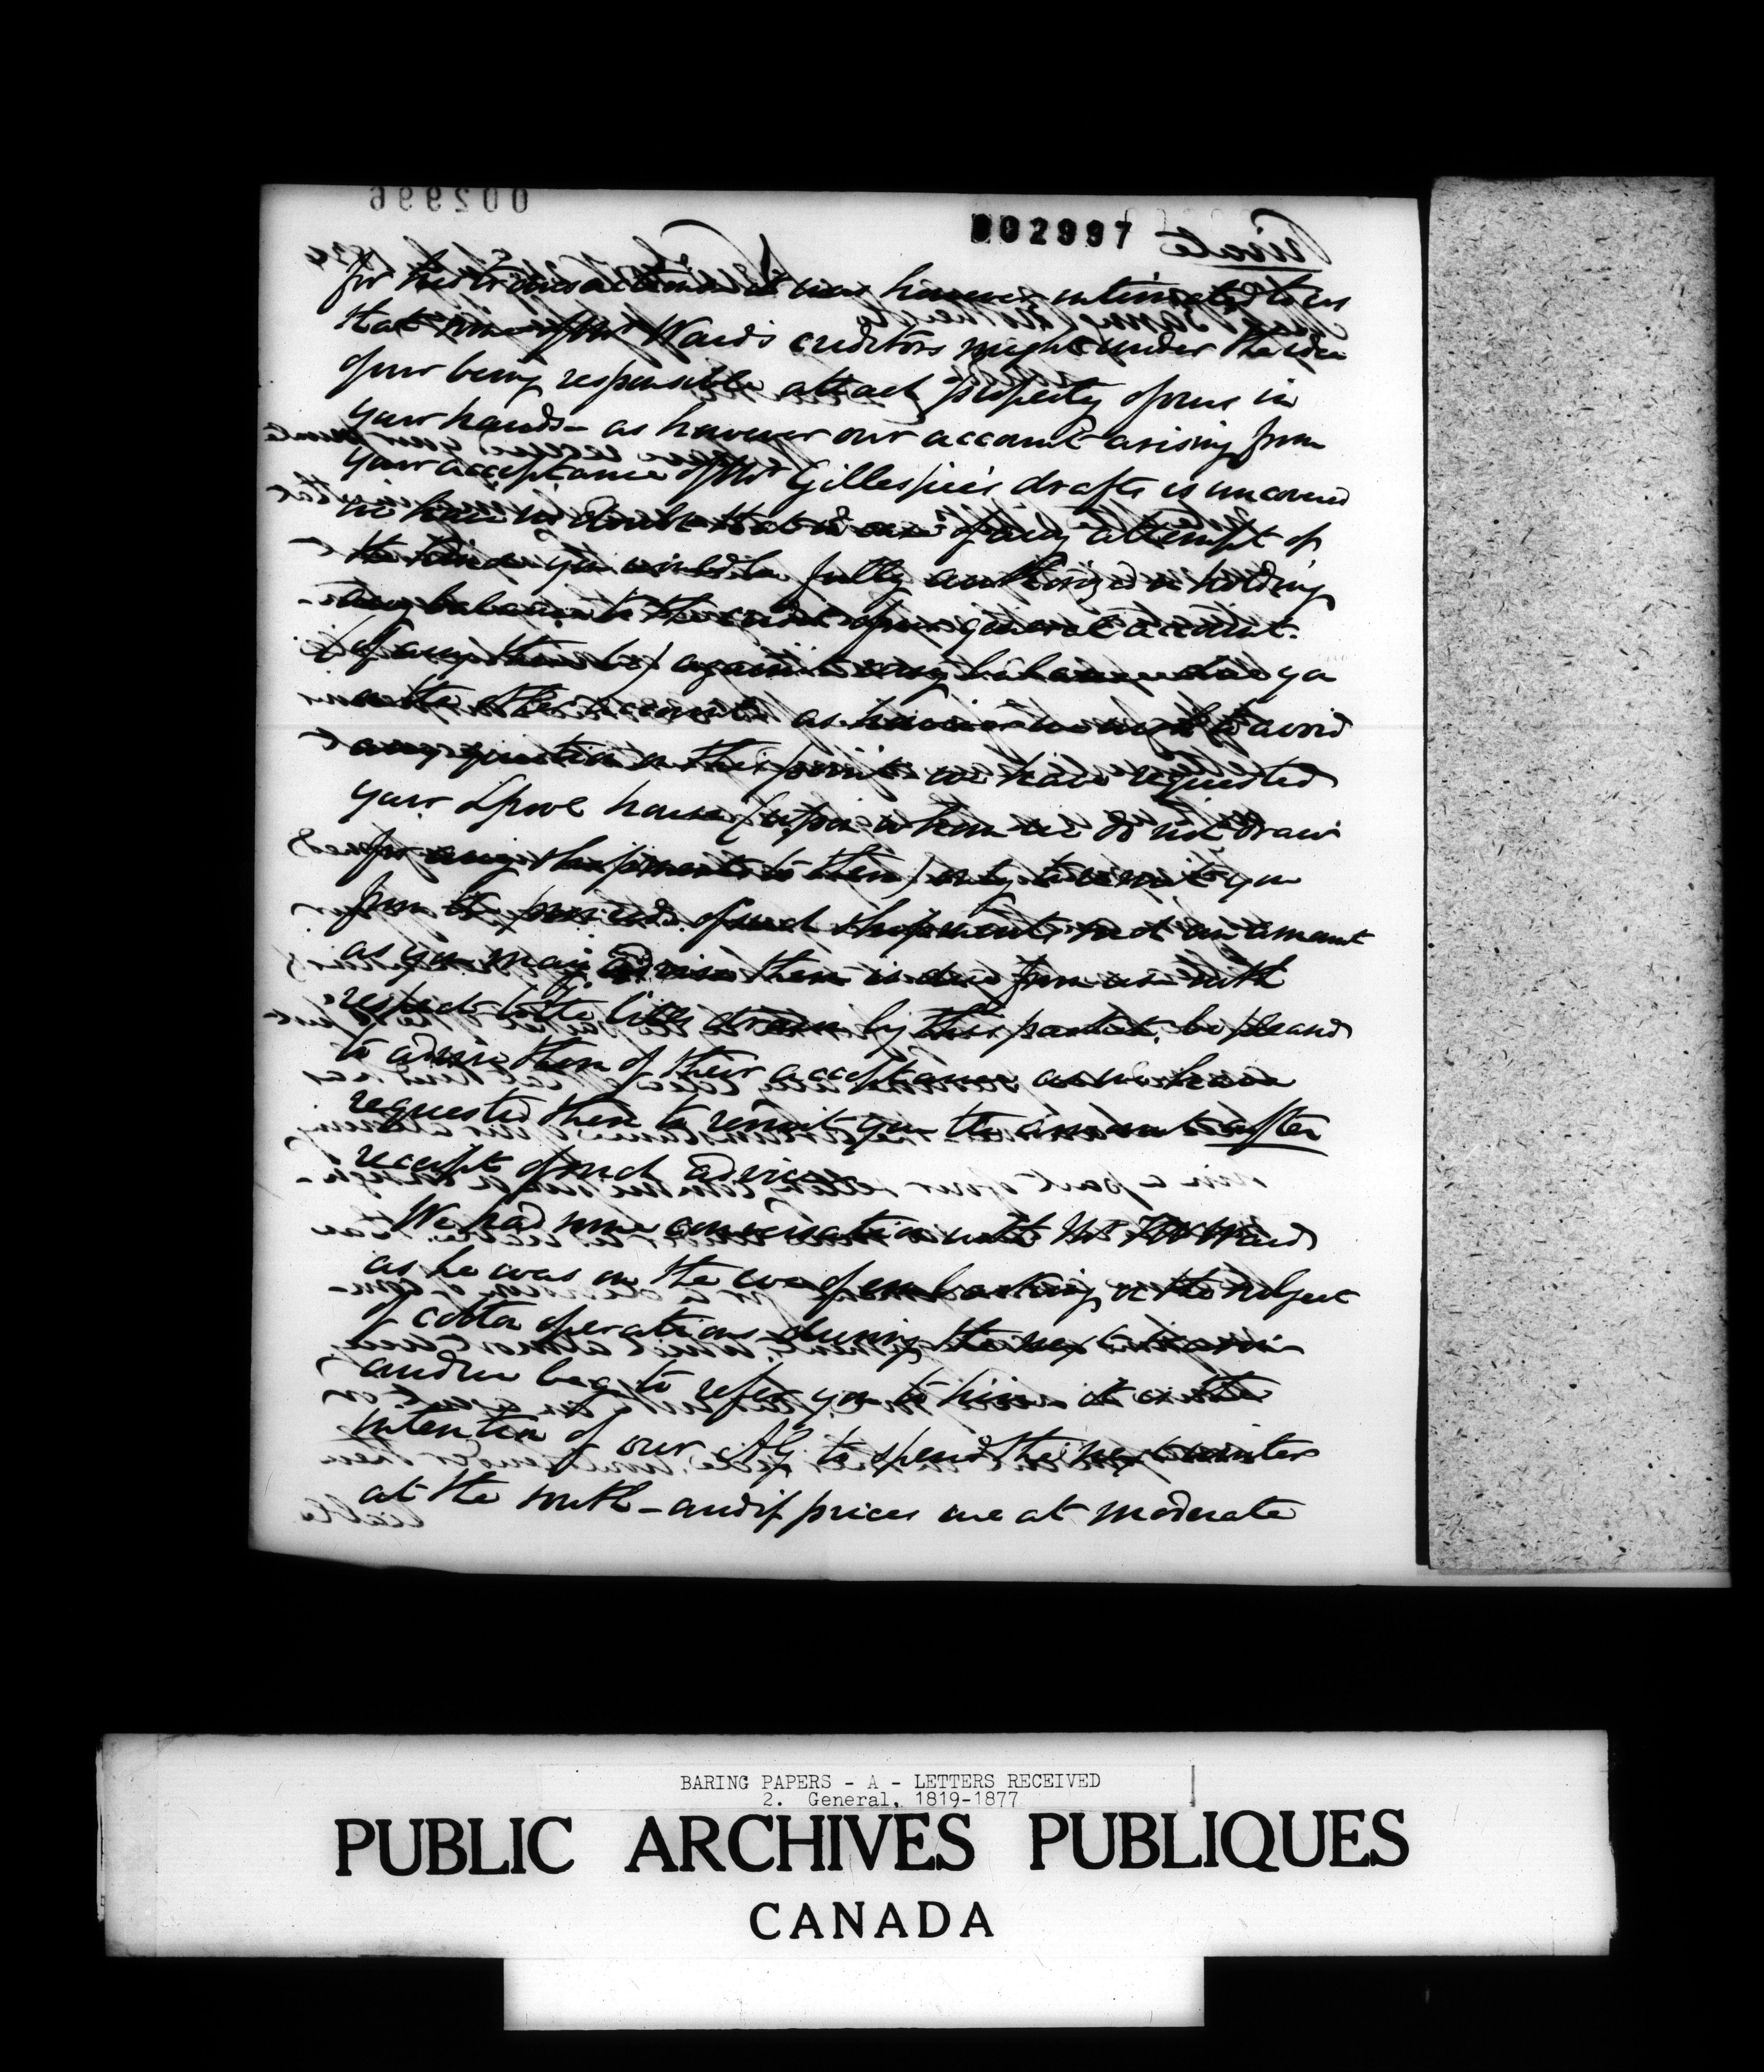 002997
for his transactions it was however intimated to us
that some of Mr Ward's creditors might under the idea
of our being responsible attach property of ours in
your hands - as however our account arising from
your acceptance of Mr Gillespie's drafts is uncovered
we have no doubt that in case of any attempt of
the kind you would be fully authorized in holding
any balance to the credit of our general account
(if any there be) against any balance due you
on the other account as however we wish to avoid
any question on this point we have requested
your Lpool house (upon whom we do not draw
for any shipments to them) only to remit you
from the proceeds of such shipments such an amount
as you may advise them is due from us with
respect to the bills drawn by this packet, be pleased
to advise them of their acceptance as we have
requested them to remit you the amount after
receipt of such advice
We had some conversation with Mr Ward
as he was on the eve of embarking on the subject
of cotton operations during the next season
and we beg to refer you to him it is the
intention of our AG to spend the next winter
at the south - and if prices are at moderate
BARING PAPERS - A - LETTERS RECEIVED
2. General, 1819-1877
PUBLIC ARCHIVES PUBLIQUES
CANADA